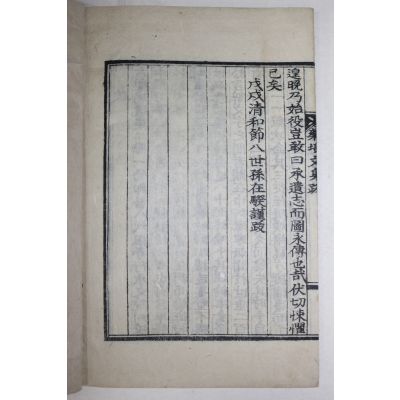 遑晩乃始役豈敢曰承遺志而圖永傳也哉伏切悚懼
已矣
戊戌清和節八世孫在驥謹跋
文集跋